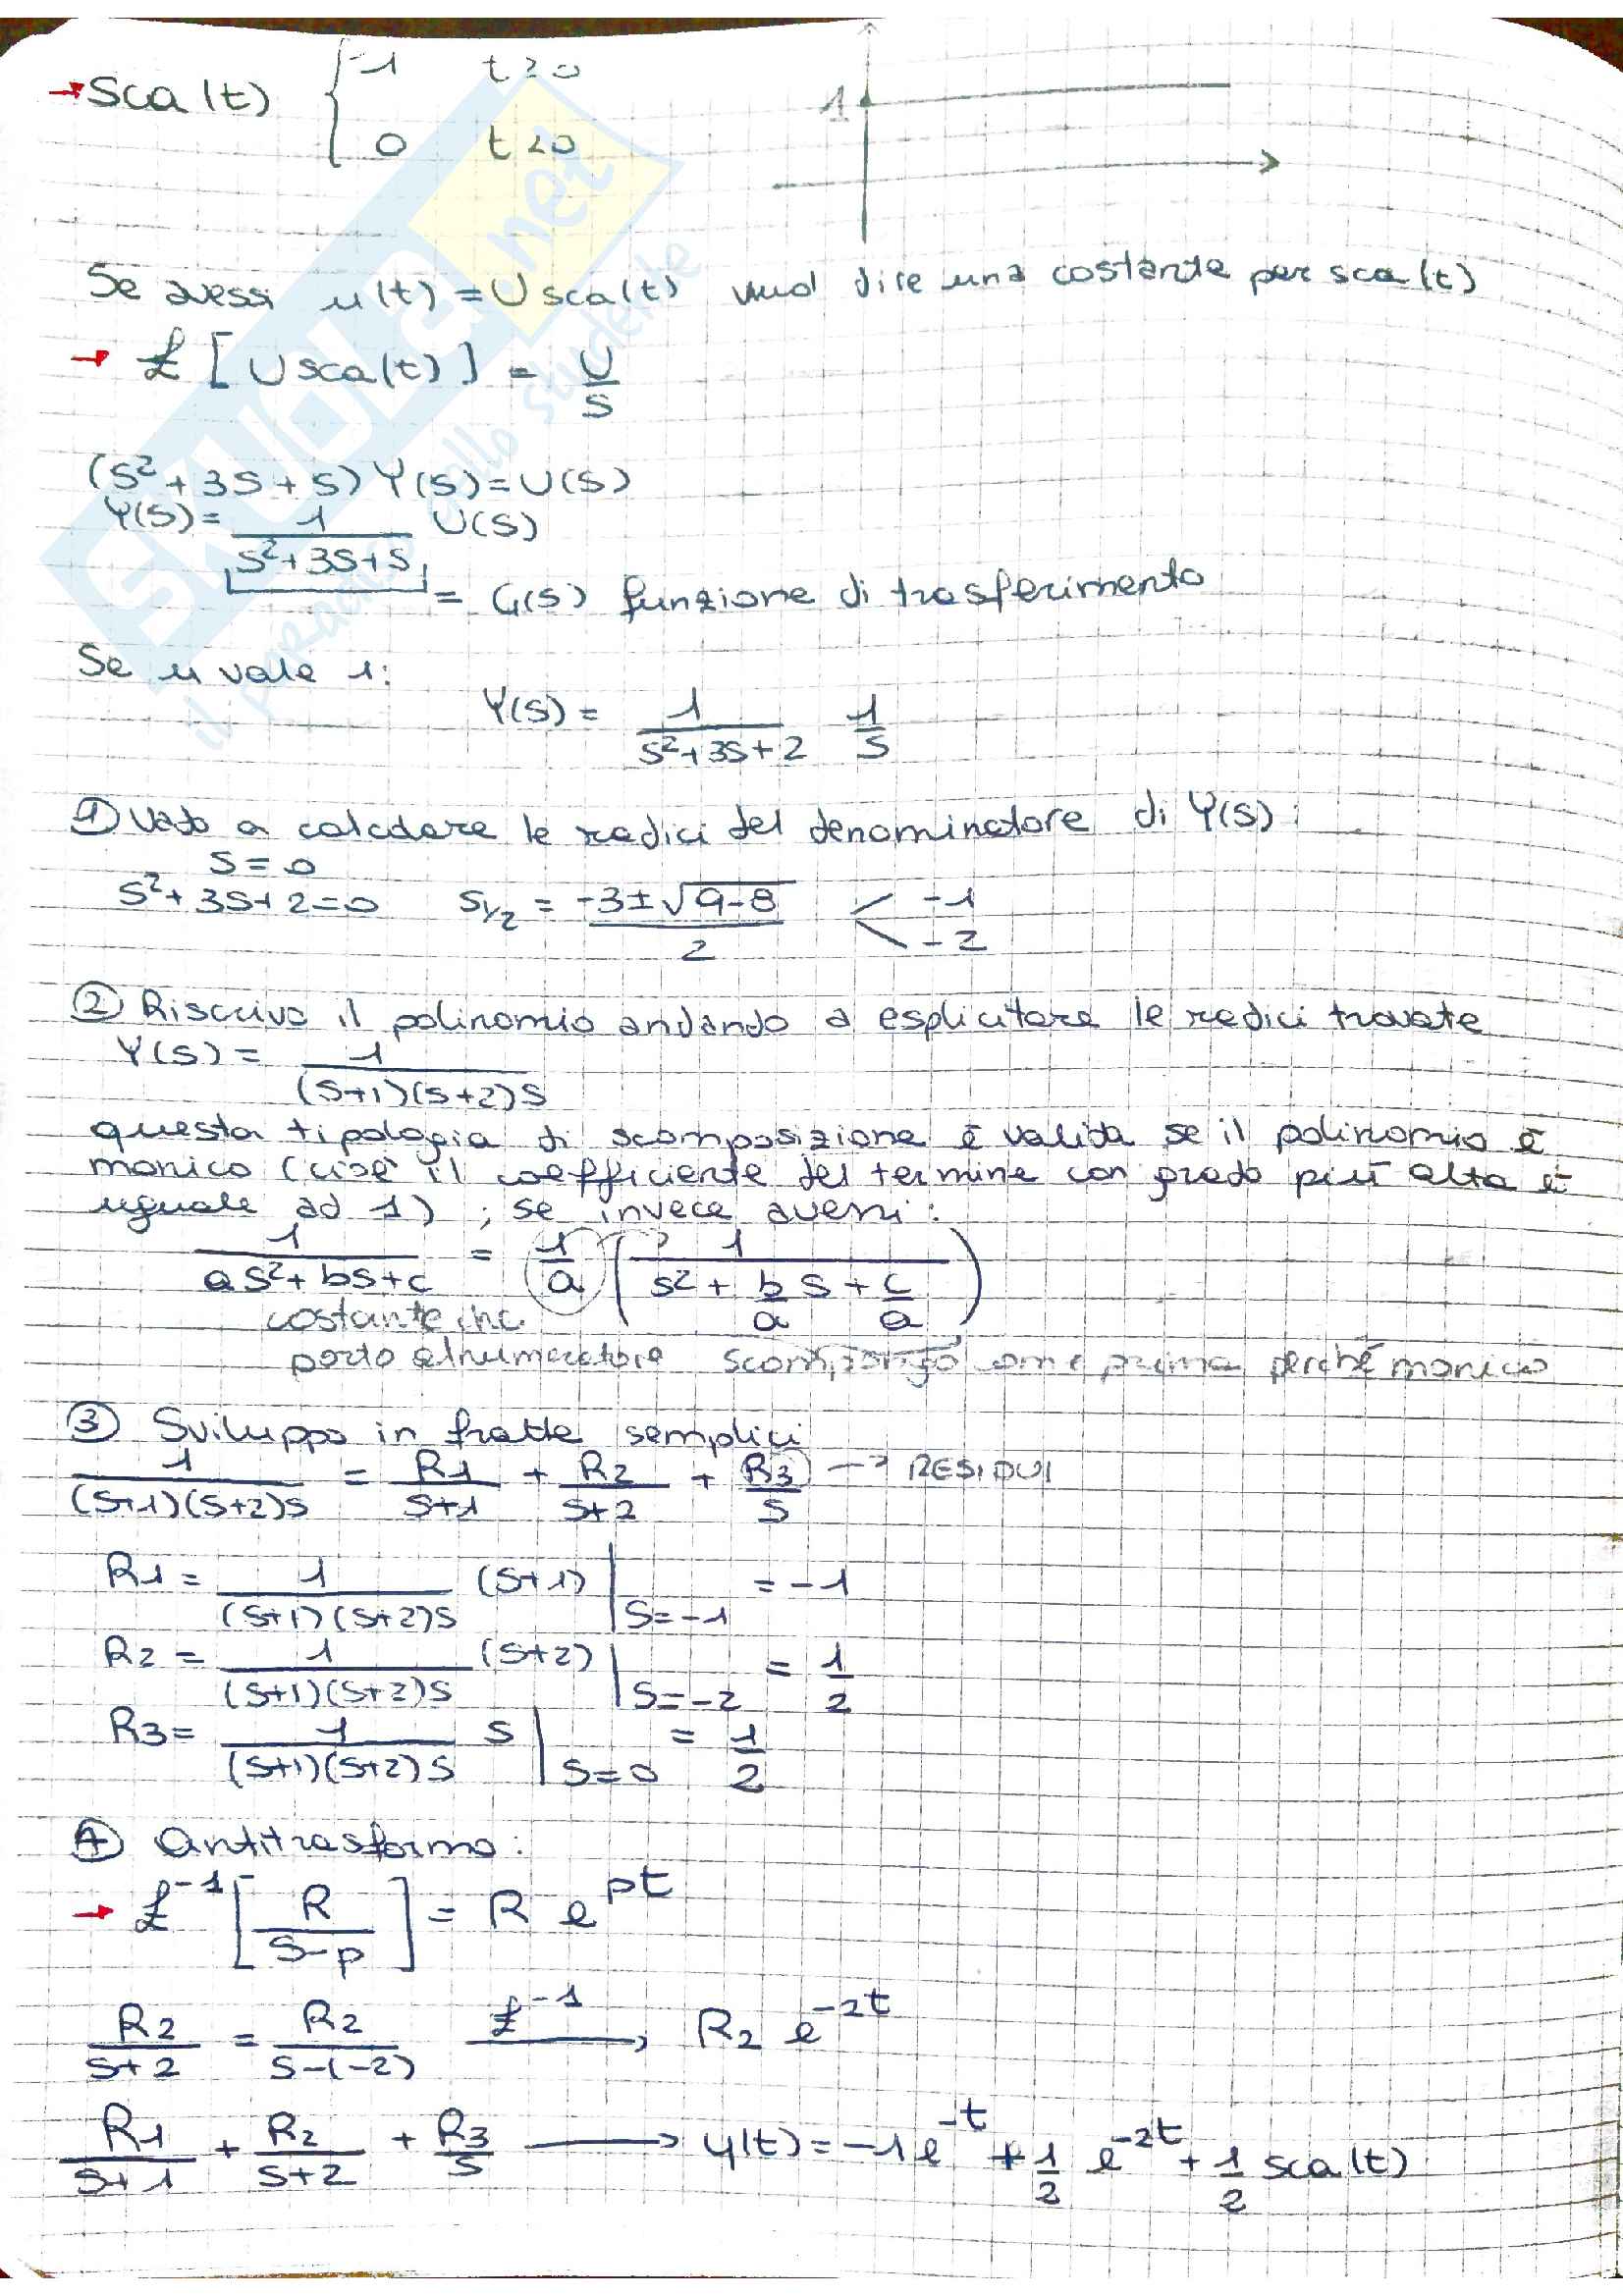 → sca(t) { 1 t≥0
0 t<0
1
Se avessi u(t) = U sca(t) vuol dire una costante per sca(t)
→ ℒ [U sca(t)] = U/s
(s²+3s+s) Y(s) = U(s)
Y(s) = 1/(s²+3s+s) U(s)
= G(s) funzione di trasferimento
Se u vale 1:
Y(s) = 1/(s²+3s+2) 1/s
① Vado a calcolare le radici del denominatore di Y(s):
s=0
s²+3s+2=0 s1/2 = (-3±√(9-8))/2 < -1
-2
② Riscrivo il polinomio andando a esplicitare le radici trovate
Y(s) = 1/((s+1)(s+2)s)
questa tipologia di scomposizione è valida se il polinomio è
monico (cioè il coefficiente del termine con grado più alto è
uguale ad 1) ; se invece avessi:
1/(as²+bs+c) = 1/a (1/(s²+b/a s+c/a))
costante che
porto al numeratore scompongo come prima perché monico
③ Sviluppo in fratte semplici
1/((s+1)(s+2)s) = R1/(s+1) + R2/(s+2) + R3/s → RESIDUI
R1 = 1/((s+1)(s+2)s) (s+1) |s=-1 = -1
R2 = 1/((s+1)(s+2)s) (s+2) |s=-2 = 1/2
R3 = 1/((s+1)(s+2)s) s |s=0 = 1/2
④ Antitrasformo:
→ ℒ⁻¹ [R/(s-p)] = R e^pt
R2/(s+2) = R2/(s-(-2)) ℒ⁻¹→ R2 e^-2t
R1/(s+1) + R2/(s+2) + R3/s → y(t) = -1e^-t + 1/2 e^-2t + 1/2 sca(t)
SKUOLA.net
il paradiso dello studente